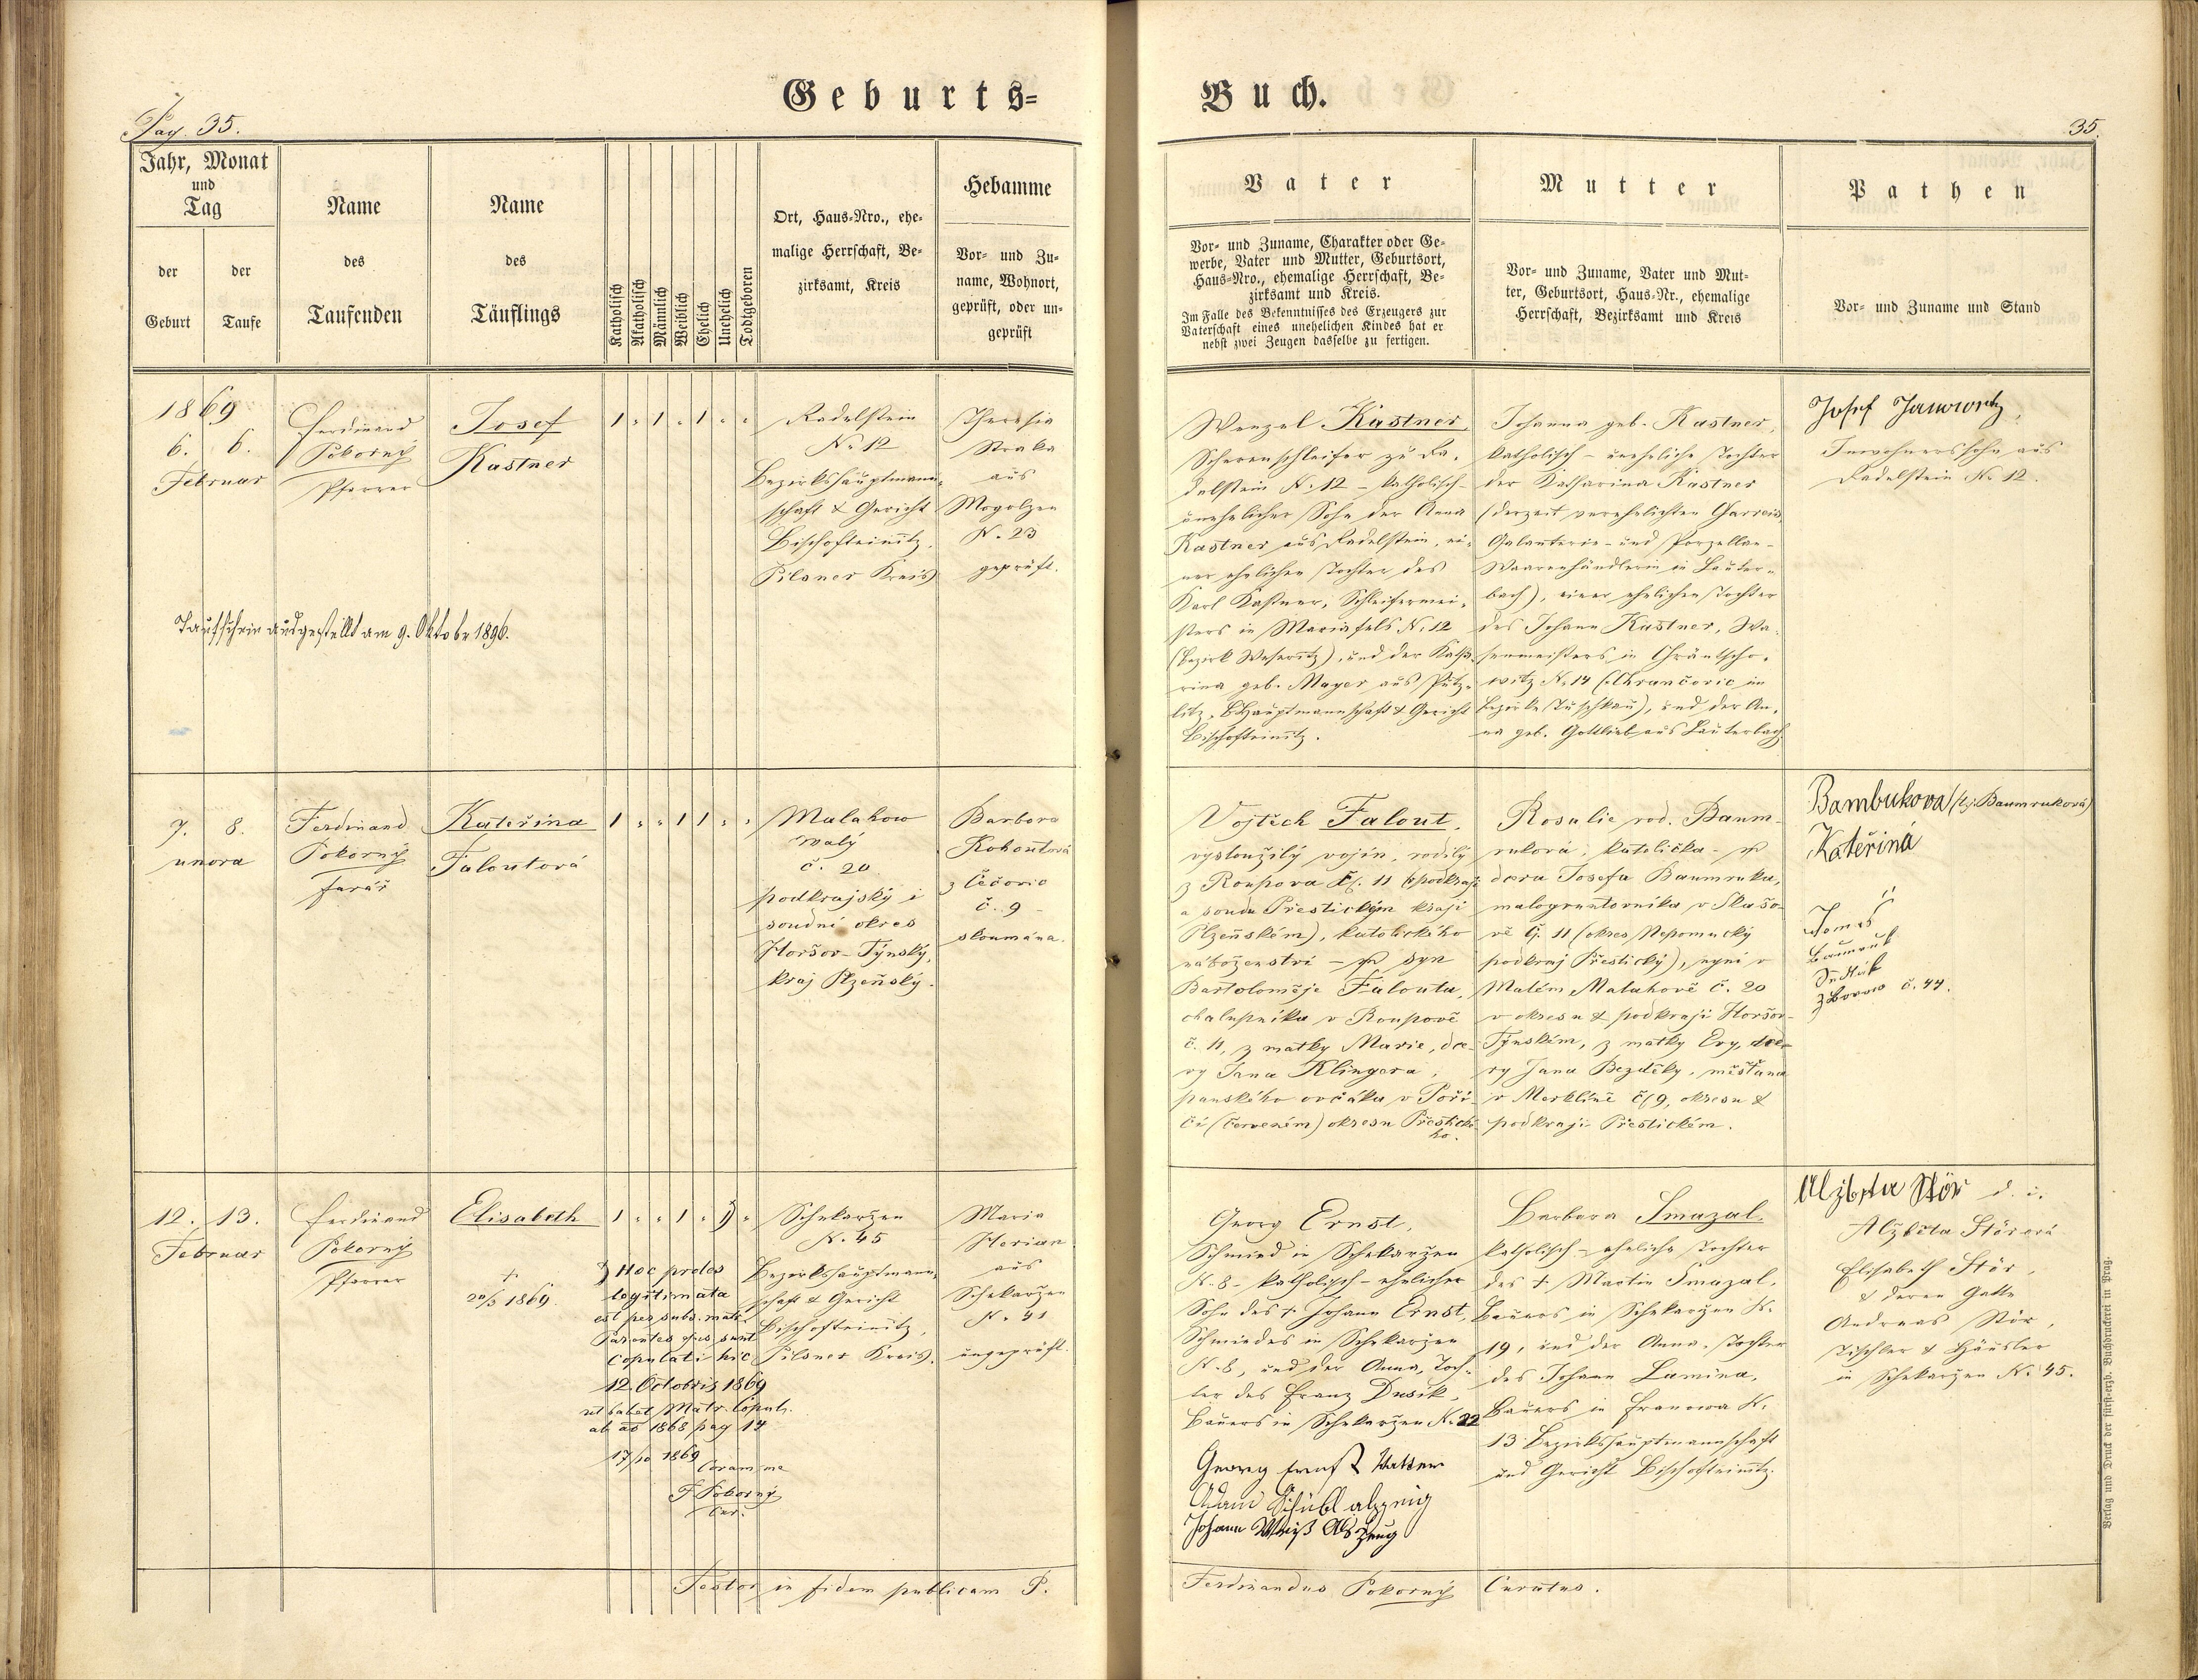 Geburts=
Buch.
Pag. 35.
35.
Jahr, Monat
und
Tag
der
Geburt
der
Taufe
Name
des
Taufenden
Name
des
Täuflings
Katholisch
Akatholisch
Männlich
Weiblich
Ehelich
Unehelich
Todtgeboren
Ort, Haus=Nro., ehe=
malige Herrschaft, Be=
zirksamt, Kreis
Hebamme
Vor= und Zu=
name, Wohnort,
geprüft, oder un=
geprüft
Vater
Vor= und Zuname, Charakter oder Ge=
werbe, Vater und Mutter, Geburtsort,
Haus=Nro., ehemalige Herrschaft, Be=
zirksamt und Kreis.
Im Falle des Bekenntnisses des Erzeugers zur
Vaterschaft eines unehelichen Kindes hat er
nebst zwei Zeugen dasselbe zu fertigen.
Mutter
Vor= und Zuname, Vater und Mut=
ter, Geburtsort, Haus=Nr., ehemalige
Herrschaft, Bezirksamt und Kreis
Pathen
Vor= und Zuname und Stand
1869
6. 6.
Februar
Ferdinand
Pokorný
Pfarrer
Josef
Kastner
1 " 1 " 1 " "
Radelstein
N. 12
Bezirkshauptmann=
schaft & Gericht
Bischofteinitz,
Pilsner Kreis
Theresia
Straka
aus
Mogolzen
N. 23
geprüft.
Taufschein ausgestellt am 9. Oktobr 1896.
Wenzel Kastner,
Scherenschleifer zu Ra=
delstein N. 12 – katholisch –
unehelicher Sohn der Anna
Kastner aus Radelstein, ei=
ner ehelichen Tochter des
Karl Kastner, Schleifermei=
sters in Mariafels N. 12
(Bezirk Weseritz), und der Katha=
rina geb. Mayer aus Putz=
litz, BHauptmannschaft & Gericht
Bischofteinitz.
Johanna geb. Kastner,
katholisch – uneheliche Tochter
der Katharina Kastner
(derzeit verehelichten
Galanterie- und Porzellan-
Waarenhändlerin in Lauter=
bach), einer ehelichen Tochter
des Johann Kastner, Wa=
senmeisters in Chrantscho=
witz N. 14 (Chrančovic im
Bezirke Tuschkau), und der An=
na geb. Gottlieb aus Lauterbach.
Josef
Inwohnerssohn aus
Radelstein N. 12.
7. 8.
unora
Ferdinand
Pokorný
farář
Kateřina
Faloutová
1 " " 1 1 " "
Malahow
malý
č. 20
podkrajský i
soudní okres
Horšov-Týnský,
kraj Plzeňský.
Barbora
Kohoutová
z Čečovic
č. 9 –
zkoumána.
Vojtěch Falout,
vysloužilý vojín, rodilý
z Roupova Čí. 11 (podkraji
a soudu Přestickým kraji
Plzeňském), katolického
náboženství – syn
Bartoloměje Falouta,
chalupníka v Roupově
č. 11, z matky Marie, dce-
ry Jana Klingera,
panského ovčáka v Poří-
čí (červeném) okresu Přestické
ho.
Rosalie rod. Baum-
ruková, katolička –
dcera Josefa Baumruka,
malogruntovníka v Skašo-
vě Čj. 11 (okres Nepomucký
podkraj Přestický), nyní v
Malém Malahově č. 20
v okresu & podkraji Horšov-
Týnském, z matky Evy, dce-
ry Jana Bezděky, měšťana
v Merklíně č/9, okresu &
podkraji Přestickém.
Bambukova (t.j. Baumruková)
Kateřina
Tomáš
Baumruk
Sedlák
z č. 44.
12. 13.
Februar
Ferdinand
Pokorný
Pfarrer
Elisabeth
†
20/3 1869.
1 " " 1 " 1) "
1) Hoc proles
legitimata
est per subs. matr.
Parentes ejus sunt
copulati hic
12. Octobris 1869
ut habet Matr. Copul.
ab ao 1868 pag 14
17/10 1869
Coram me
F. Pokorný
Cur.
Schekarzen
N. 45
Bezirkshauptmann=
schaft & Gericht
Bischofteinitz,
Pilsner Kreis.
Maria
Herian
aus
Schekarzen
N. 41
ungeprüft.
Georg Ernst,
Schmied in Schekarzen
N. 8 – katholisch – ehelicher
Sohn des † Johann Ernst,
Schmiedes in Schekarzen
N. 8, und der Anna, Toch=
ter des Franz Dusik,
Bauers in Schekarzen N. 22
Georg Ernst Vatter
Adam Schübl alszeig
Johann Weiß Als Zeug
Barbara Smazal,
katholisch – eheliche Tochter
des † Martin Smazal,
Bauers in Schekarzen N.
19, und der Anna, Tochter
des Johann Lamina,
Bauers in Franowa N.
13 Bezirkshauptmannschaft
und Gericht Bischofteinitz.
Alzbeta Stör d. i.
Alžběta Störová
Elisabeth Stör,
& deren Gatte
Andreas Stör,
Tischler & Häusler
in Schekarzen N. 45.
Testor in fidem publicam P.
Ferdinandus Pokorný
Curatus.
Verlag und Druck der fürsterzb. Buchdruckerei in Prag.